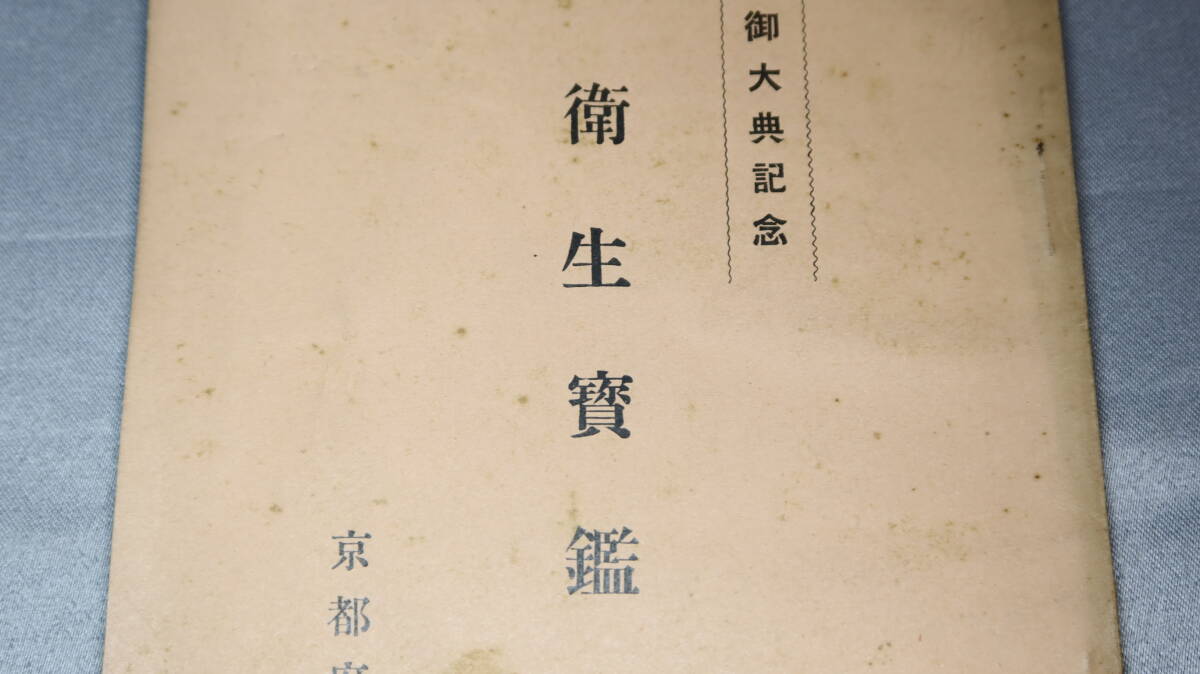 御大典記念
衛生寳鑑
京都府